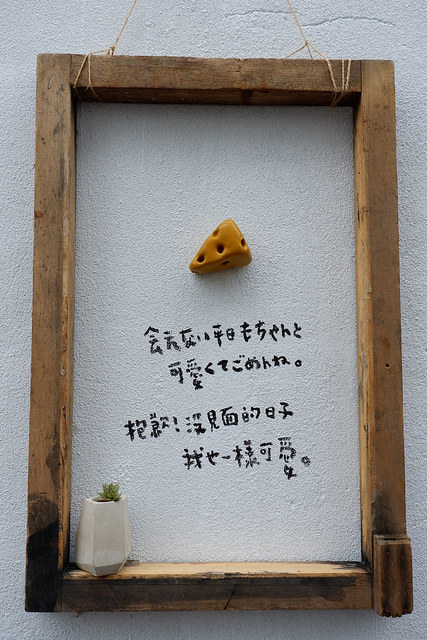 会えない平日もちゃんと
可愛くてごめんね。
抱歉！沒見面的日子
我也一樣可愛。